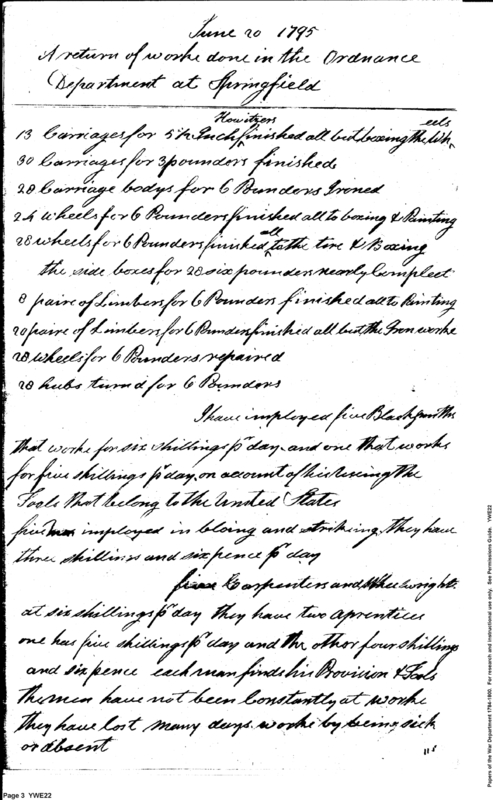 June 20 1795
A return of worke done in the Ordnance
Department at Springfield
13 Carriages for 5½ Inch Howitzers finished all but boxing the Wheels
30 Carriages for 3 pounders finished
28 Carriage bodys for 6 Pounders Ironed
24 wheels for 6 Pounders finished all to boxing & Painting
28 wheels for 6 Pounders finished all to the tire & Boxing
the side boxes for 28 six pounders nearly Compleet
8 paire of Limbers for 6 Pounders finished all to Painting
20 paire of Limbers for 6 Pounders finished all but the Iron worke
28 wheels for 6 Pounders repaired
28 hubs turnd for 6 Pounders
I have imployed five Blacksmiths
that worke for six shillings pr day and one that works
for five shillings pr day, on account of his useing the
Tools that belong to the United States
five men imployed in bloing and striking, they have
three shillings and six pence pr day
five Carpenters and Wheelwrights
at six shillings pr day they have two aprentices
one has five shillings pr day and the other four shillings
and six pence each man finds his Provision & Tools
The men have not been Constantly at worke
they have lost many days worke by being sick
or absent
Page 3 YWE22
Papers of the War Department 1784-1800. For research and instructional use only. See Permissions Guide. YWE22